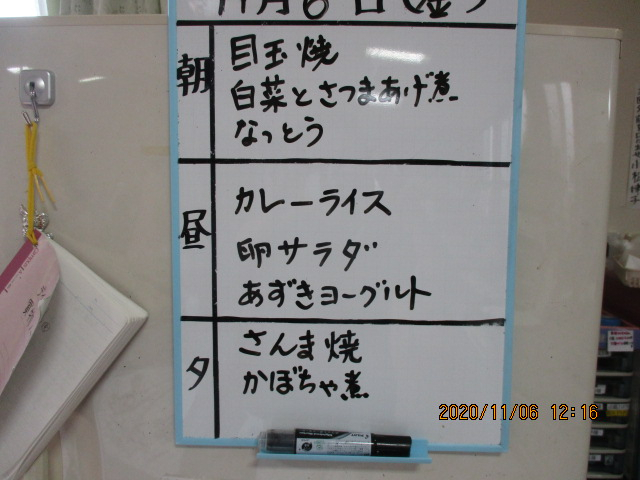 11月6日(金)
朝
目玉焼
白菜とさつまあげ煮
なっとう
昼
カレーライス
卵サラダ
あずきヨーグルト
夕
さんま焼
かぼちゃ煮
2020/11/06 12:16